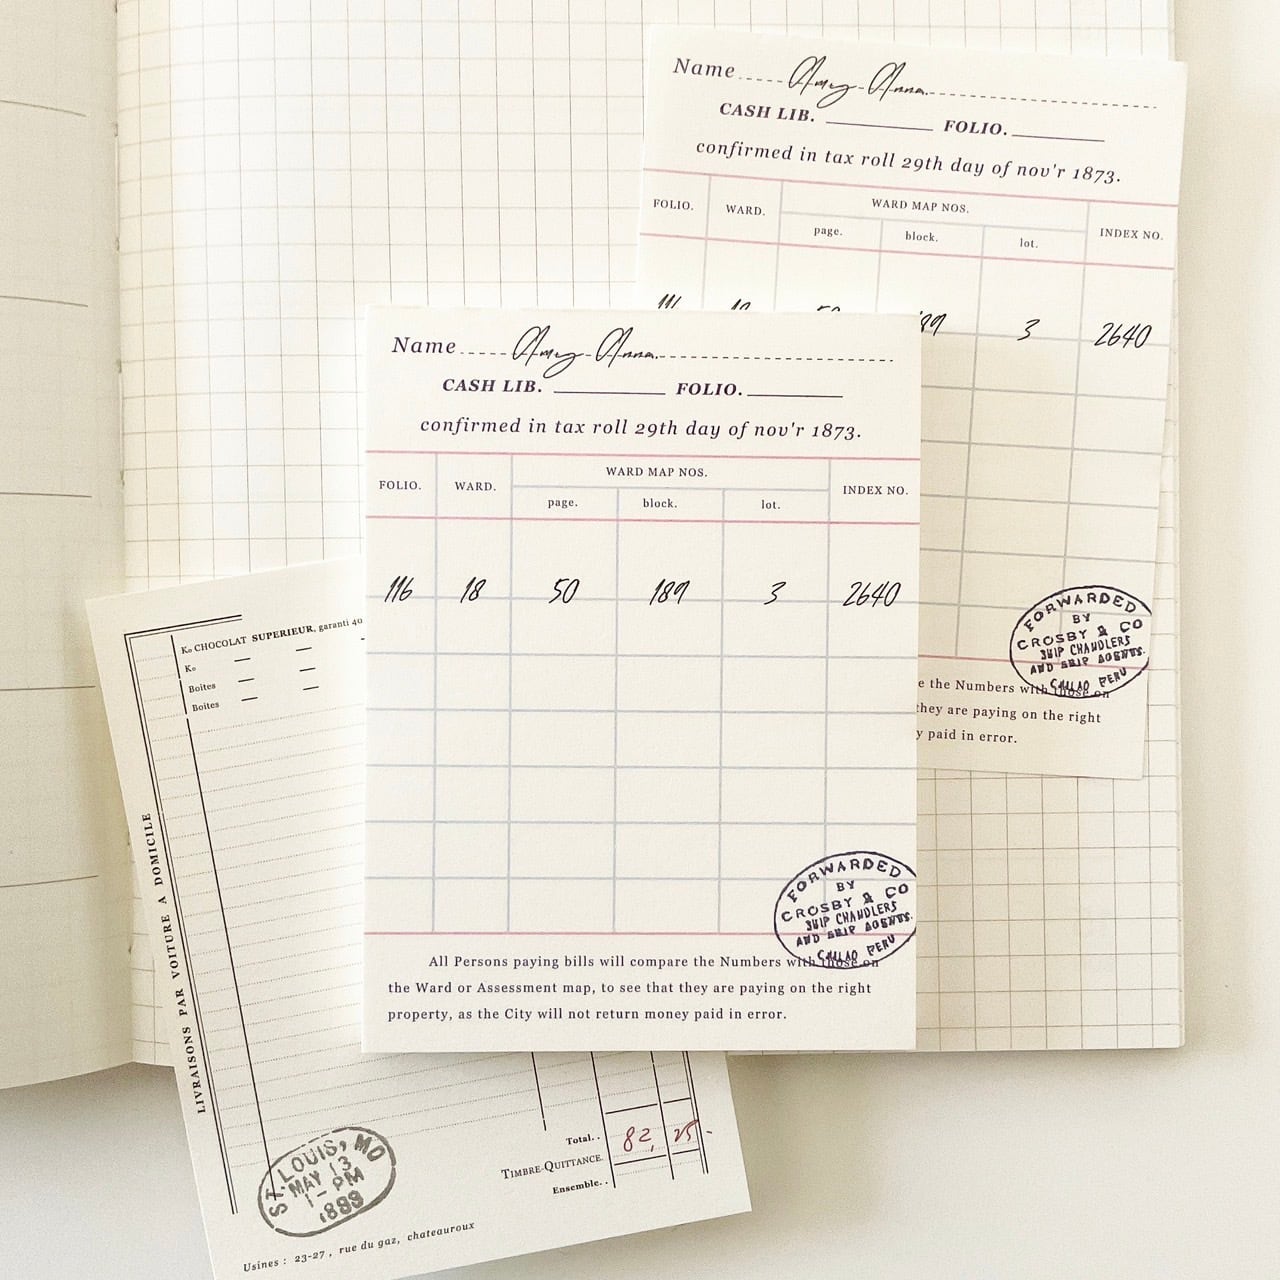 Name Amy-Anna.
CASH LIB. FOLIO.
confirmed in tax roll 29th day of nov'r 1873.
FOLIO. WARD. WARD MAP NOS. INDEX NO.
page. block. lot.
3 2640
FORWARDED
BY
CROSBY & CO
SHIP CHANDLERS
AND SHIP AGENTS.
CALLAO PERU
e the Numbers with those on
they are paying on the right
y paid in error.
Name Amy-Anna.
CASH LIB. FOLIO.
confirmed in tax roll 29th day of nov'r 1873.
FOLIO. WARD. WARD MAP NOS. INDEX NO.
page. block. lot.
116 18 50 189 3 2640
FORWARDED
BY
CROSBY & CO
SHIP CHANDLERS
AND SHIP AGENTS.
CALLAO PERU
All Persons paying bills will compare the Numbers with those on
the Ward or Assessment map, to see that they are paying on the right
property, as the City will not return money paid in error.
Ko CHOCOLAT SUPERIEUR, garanti 40
Ko — —
Boites — —
Boites — —
LIVRAISONS PAR VOITURE A DOMICILE
Total. . 82, 25 -
TIMBRE-QUITTANCE.
Ensemble. .
ST. LOUIS, MO
MAY 13
1 - PM
1899
Usines : 23-27 , rue du gaz, chateauroux